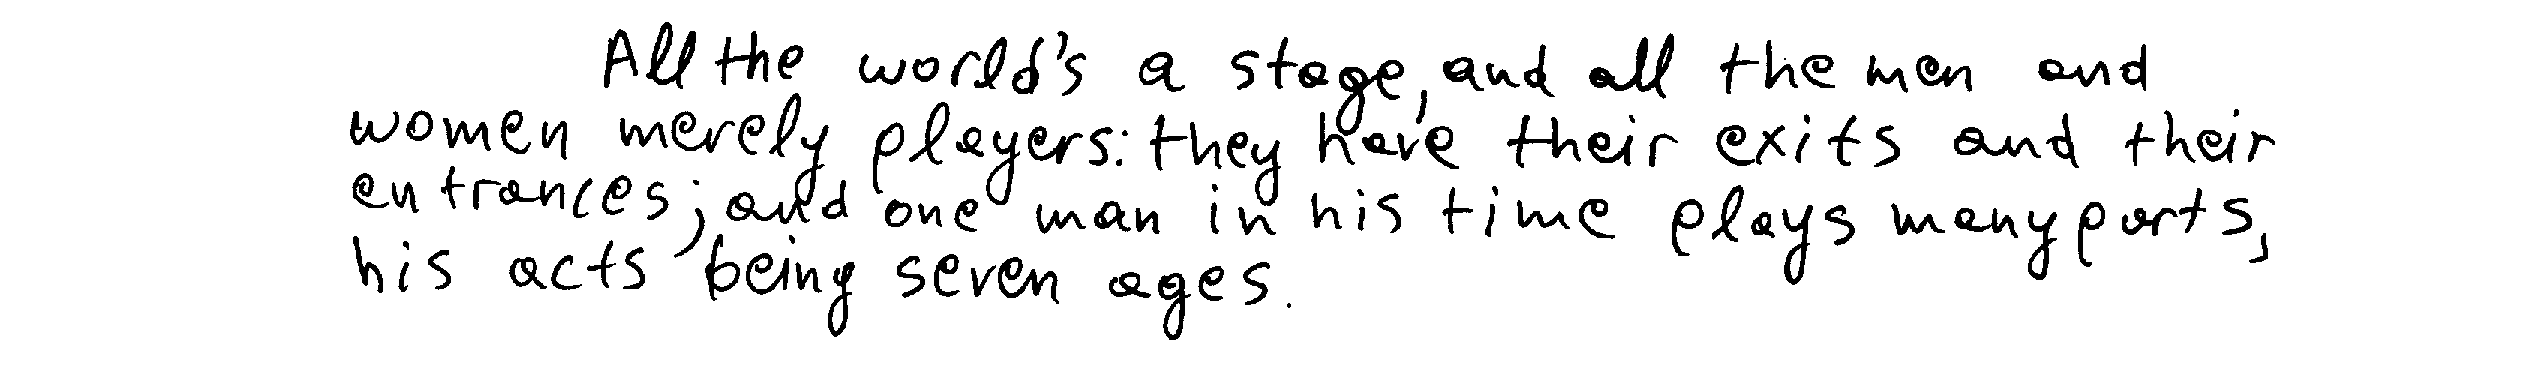 All the world's a stage, and all the men and
women merely players: they have their exits and their
entrances; and one man in his time plays many parts,
his acts being seven ages.